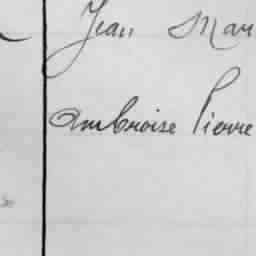 Jean Mar
Ambroise Pierre